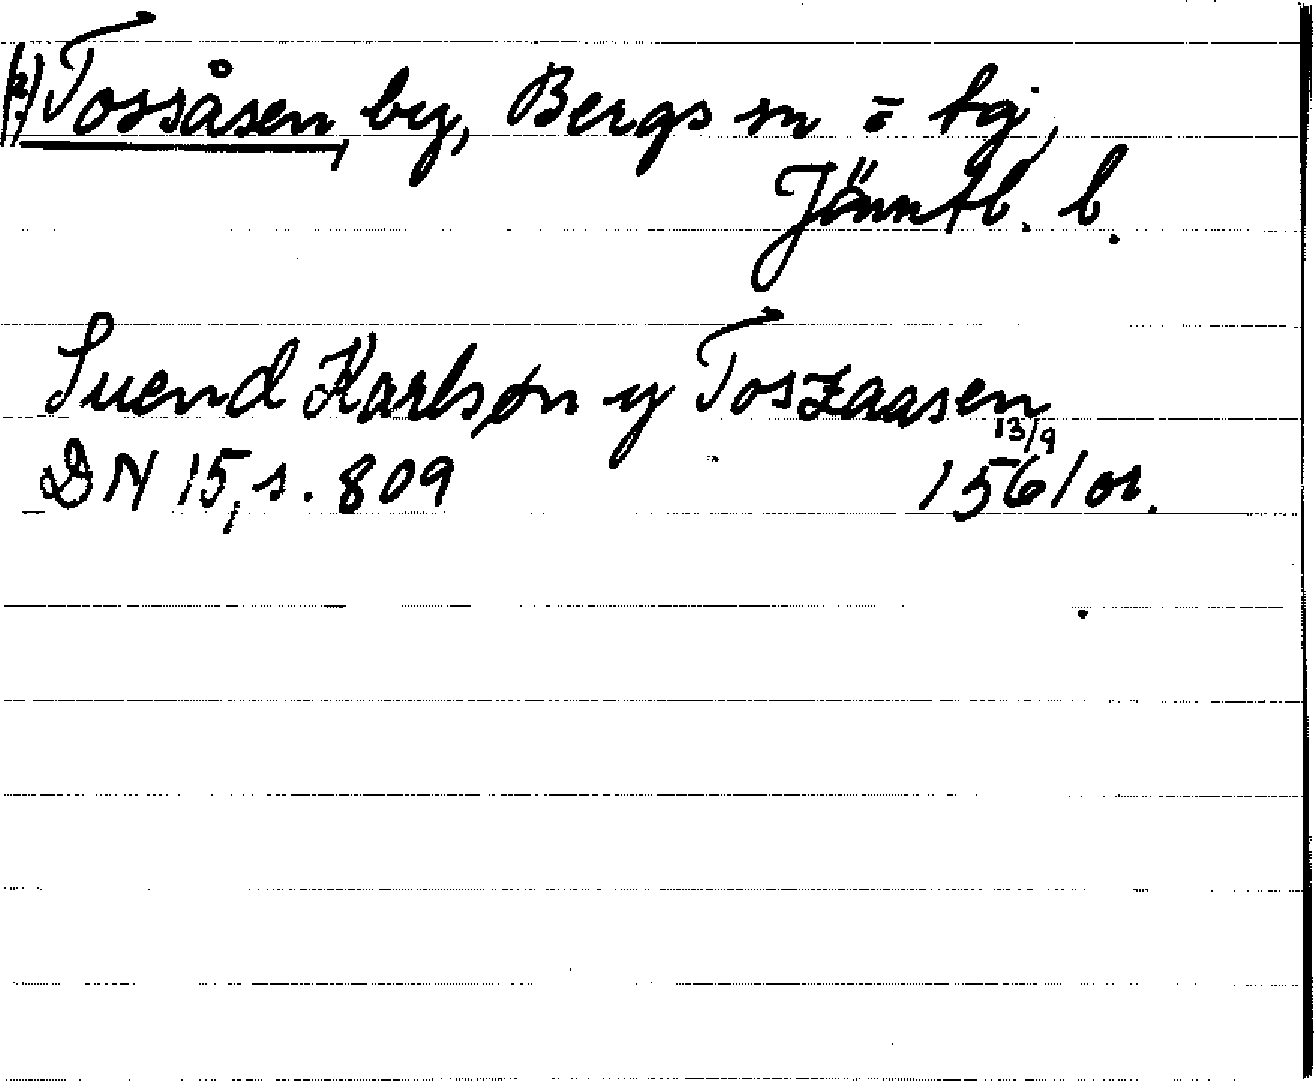 Tossåsen, by, Bergs sn = tg,
Jämtl. l.
Suend Karlsøn y Toszaasen
13/9
DN 15, s. 809 1561 or.